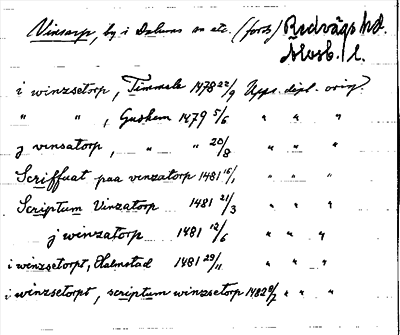 Vinsarp, by i Dalums sn etc. (forts) Redvägs hd.
Älvsb. l.
i winzsetorp, Timmele 1478 22/9 Upps. dipl. orig?
" " , Gudhem 1479 5/6 " " "
j vinsatorp, " " 20/8 " " "
Scriffuat paa venzatorp 1481 16/1 " " "
Scriptum Vinzatorp 1481 21/3 " " "
j winzatorp 1481 12/6 " " "
i winzsetorpt, Halmstad 1481 29/11 " " "
i winzsetorpt, scriptum winzsetorp 1482 8/7 " " "